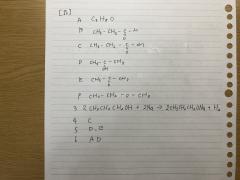 [II]
A C3H8O
B CH3-CH2-C-H
O
C CH3-CH2-C-OH
O
D CH3-C-CH3
OH
E CH3-C-CH3
O
F CH3-CH2-O-CH3
3 2CH3CH2CH2OH + 2Na → 2CH3CH2CH2ONa + H2
4 C
5 D, E
6 A D